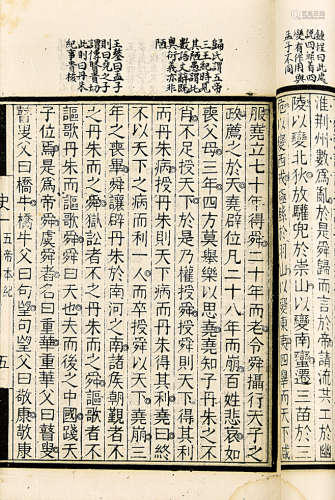 鍾惺曰此處
說四罪者四
變有作用與
孟子不同
歸氏謂五帝
三王紀時見
其陋愚謂此
數語文辭既
奧衍義亦非
陋
王鏊曰孟子
則曰堯之子
此則曰丹朱
淮荆州數爲亂於是舜歸而言於帝請流共工於幽
陵以變北狄放驩兜於崇山以變南蠻遷三苗於三
危以變西戎殛鯀於羽山以變東夷四罪而天下咸
服堯立七十年得舜二十年而老令舜攝行天子之
政薦之於天堯辟位凡二十八年而崩百姓悲哀如
喪父母三年四方莫舉樂以思堯堯知子丹朱之不
肖不足授天下於是乃權授舜授舜則天下得其利
而丹朱病授丹朱則天下病而丹朱得其利堯曰終
不以天下之病而利一人而卒授舜以天下堯崩三
年之喪畢舜讓辟丹朱於南河之南諸侯朝覲者不
之丹朱而之舜獄訟者不之丹朱而之舜謳歌者不
謳歌丹朱而謳歌舜舜曰天也夫而後之中國踐天
子位焉是爲帝舜虞舜者名曰重華重華父曰瞽叟
瞽叟父曰橋牛橋牛父曰句望句望父曰敬康敬康
史一 五帝本紀 五